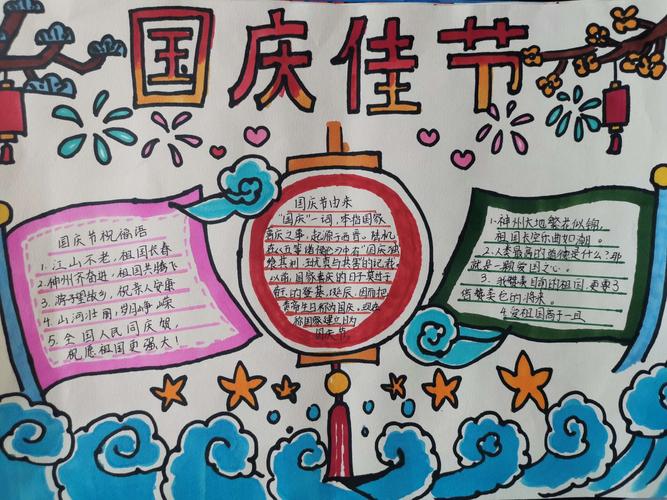 国庆佳节
国庆节祝福语
1. 江山不老,祖国长春
2. 神州齐奋进,祖国共腾飞
3. 将天望故乡,祝亲人安康
4. 山河壮丽,岁月峥嵘
5. 全国人民同庆贺,
祝愿祖国更强大!
国庆节由来
"国庆"一词,本指国家
喜庆之事,起源于西晋。陆机
以前,国家喜庆的日子莫过于
称国家建立日为
国庆节
1. 神州大地繁花似锦,
祖国长空乐曲如潮。
2. 人类最高的道德是什么?那
就是一颗爱国之心。
3. 我赞美目前的祖国,更要3
倍赞美它的将来。
4.